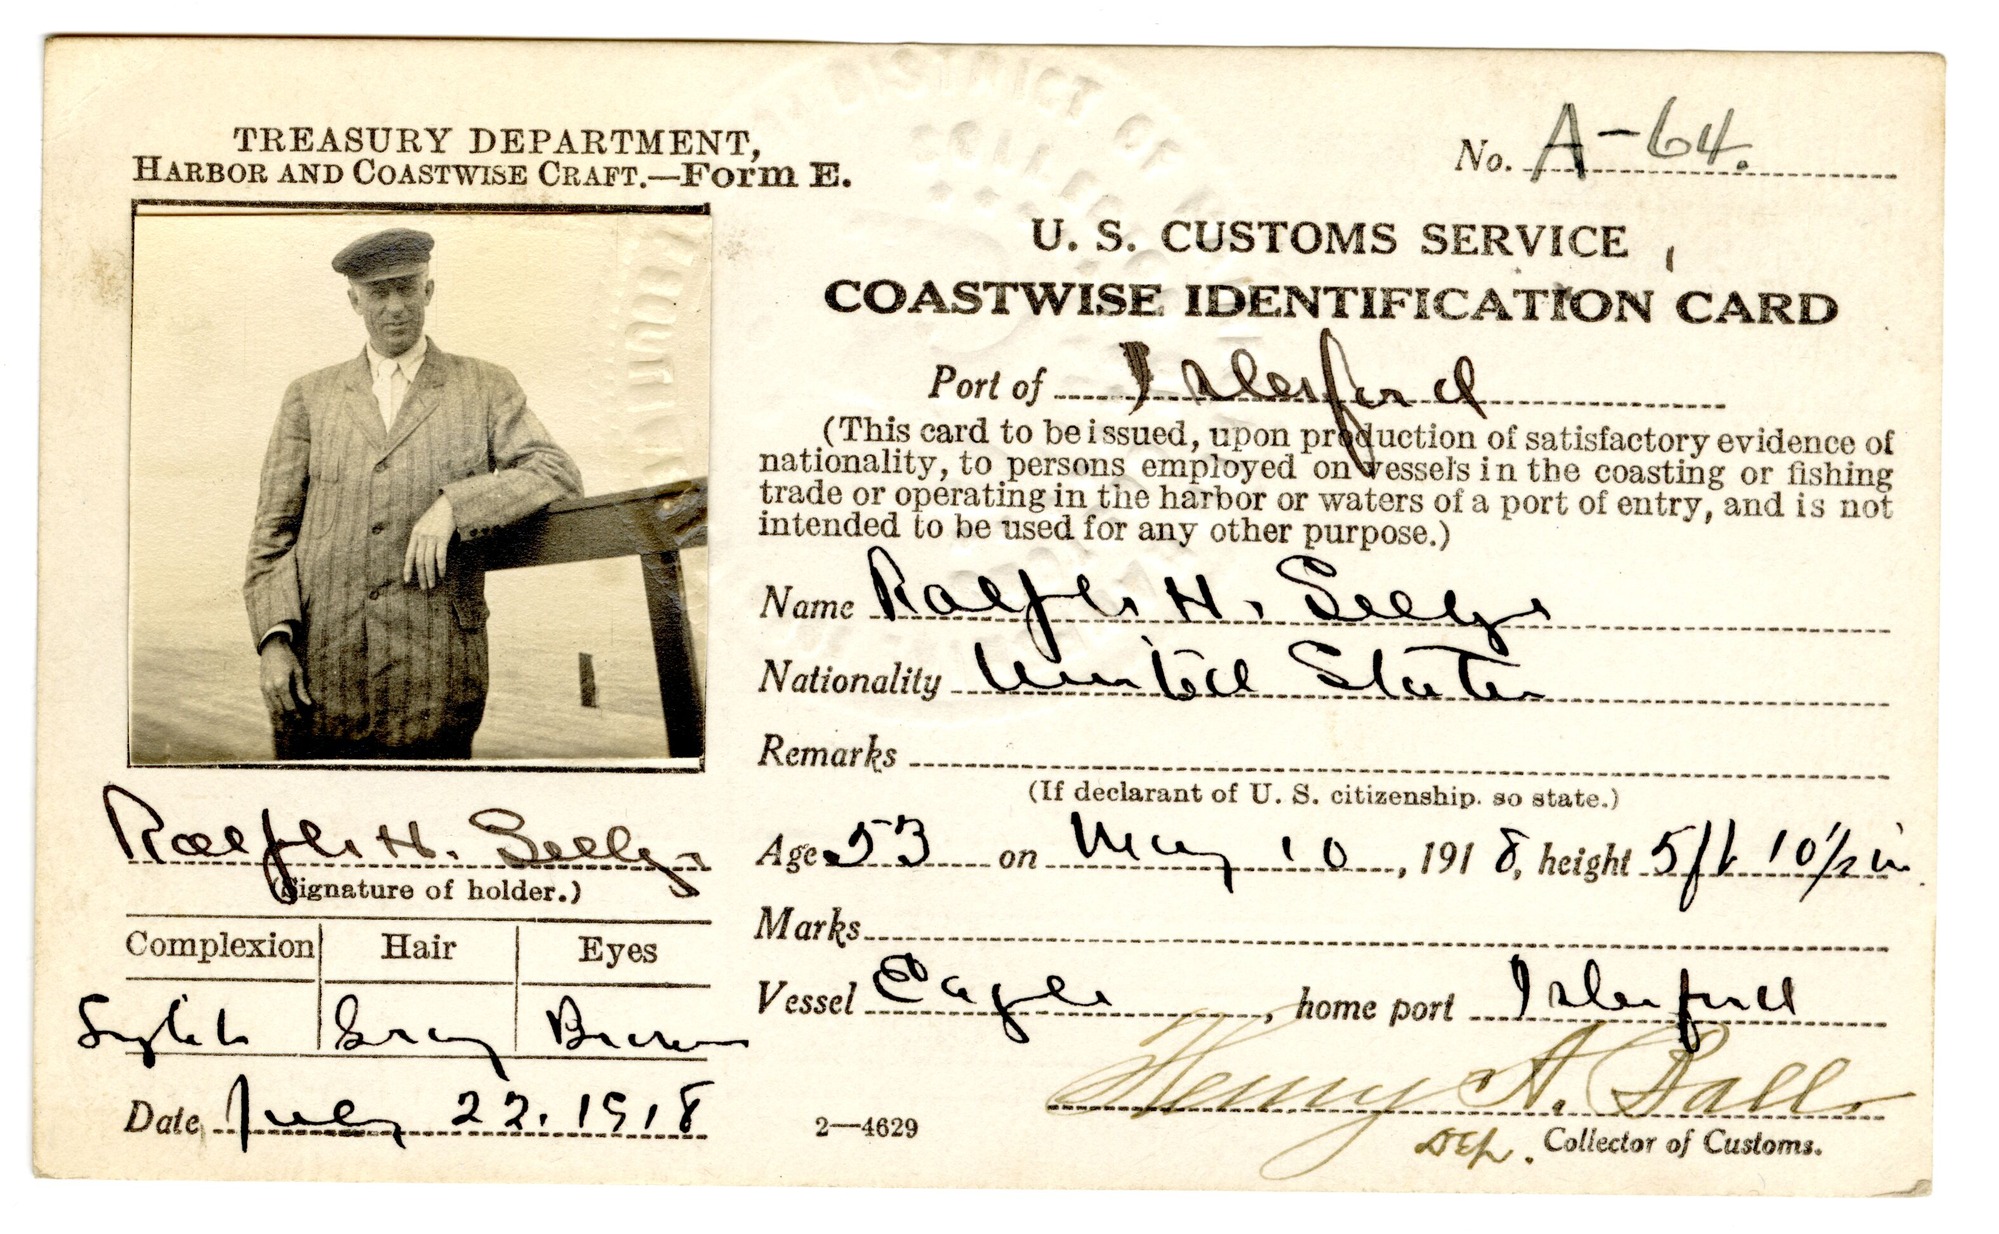 TREASURY DEPARTMENT,
HARBOR AND COASTWISE CRAFT.—Form E.
No. A-64.
U. S. CUSTOMS SERVICE
COASTWISE IDENTIFICATION CARD
Port of Islesford
(This card to be issued, upon production of satisfactory evidence of
nationality, to persons employed on vessels in the coasting or fishing
trade or operating in the harbor or waters of a port of entry, and is not
intended to be used for any other purpose.)
Name Ralph H. Seely
Nationality United States
Remarks
(If declarant of U. S. citizenship. so state.)
Age 53 on May 10, 1918, height 5 ft 10 1/2 in
Marks
Vessel Eagle, home port Islesford
Henry A. Ball
Dep. Collector of Customs.
2—4629
Ralph H. Seely
(Signature of holder.)
Complexion Hair Eyes
Gray Brown
Date, July 22. 1918